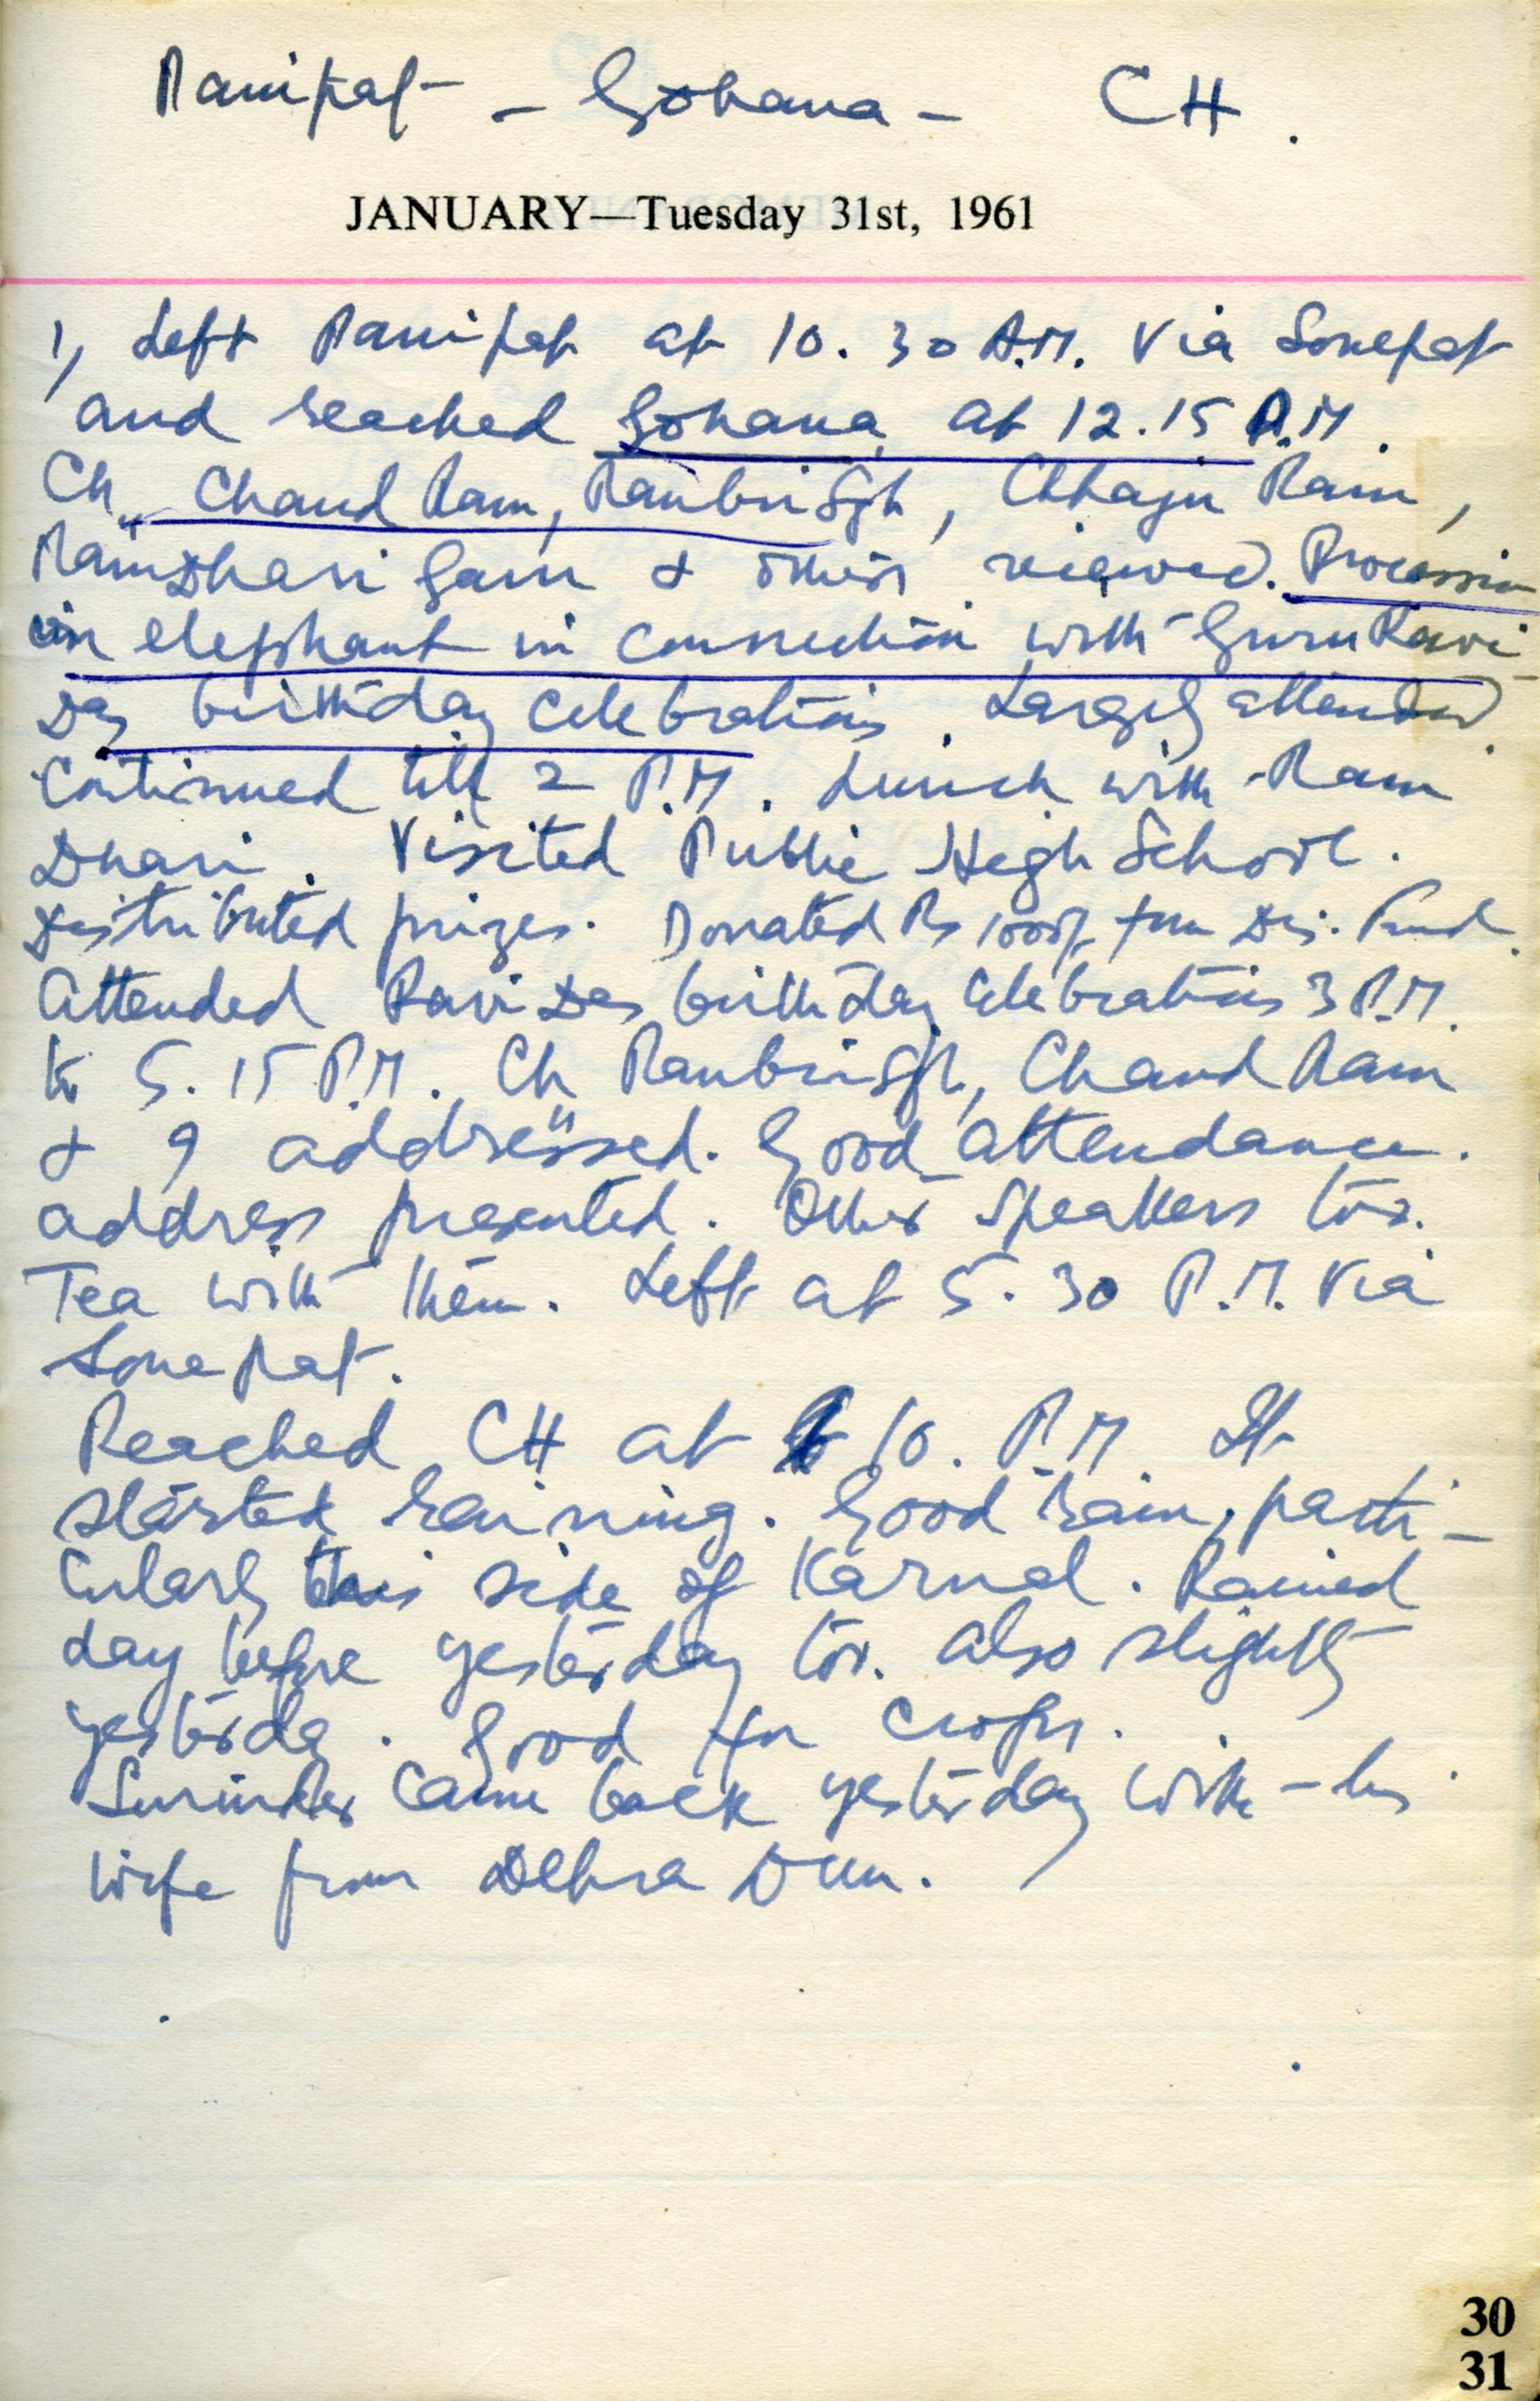 Panipat - Gohana - CH.
JANUARY—Tuesday 31st, 1961
1, Left Panipat at 10.30 A.M. Via Sonepat
and reached Gohana at 12.15 P.M.
Ch. Chand Ram, Ranbir Sgh, Chhaju Ram,
Ram Dhari Gaur & others received. Procession
on elephant in connection with Guru Ravi
Das birthday celebrations. Largely attended.
Continued till 2 P.M. Lunch with Ram
Dhari. Visited Public High School.
Distributed prizes. Donated Rs 1000/- from Dis. Fund.
Attended Ravi Das birthday celebrations 3 P.M.
to 5.15 P.M. Ch Ranbir Sgh, Chand Ram
& I addressed. Good attendance.
Address presented. Other Speakers too.
Tea with them. Left at 5.30 P.M. Via
Sonepat.
Reached CH at 10. P.M. It
started raining. Good rain, parti-
cularly this side of Karnal. Rained
day before yesterday too. Also slightly
yesterday. Good for crops.
Surinder came back yesterday with his
wife from Dehra Dun.
30
31